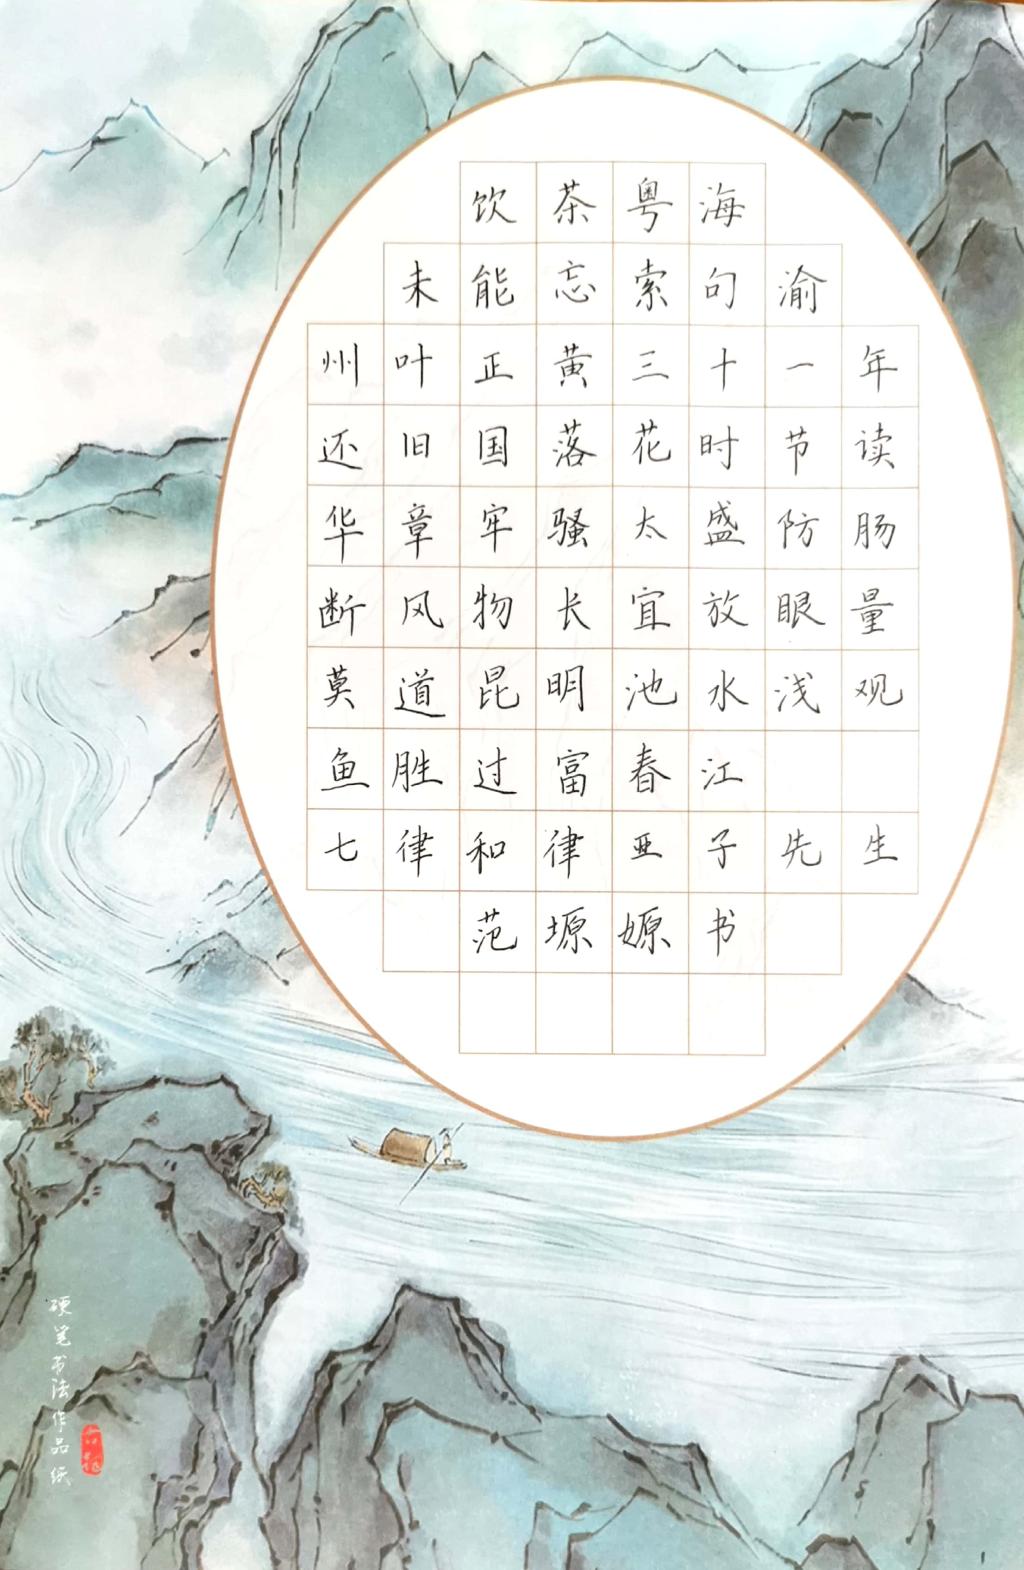 饮茶粤海
未能忘索句渝
州叶正黄三十一年
还旧国落花时节读
华章牢骚太盛防肠
断风物长宜放眼量
莫道昆明池水浅观
鱼胜过富春江
七律和律亚子先生
范塬嫄书
硬笔书法作品纸